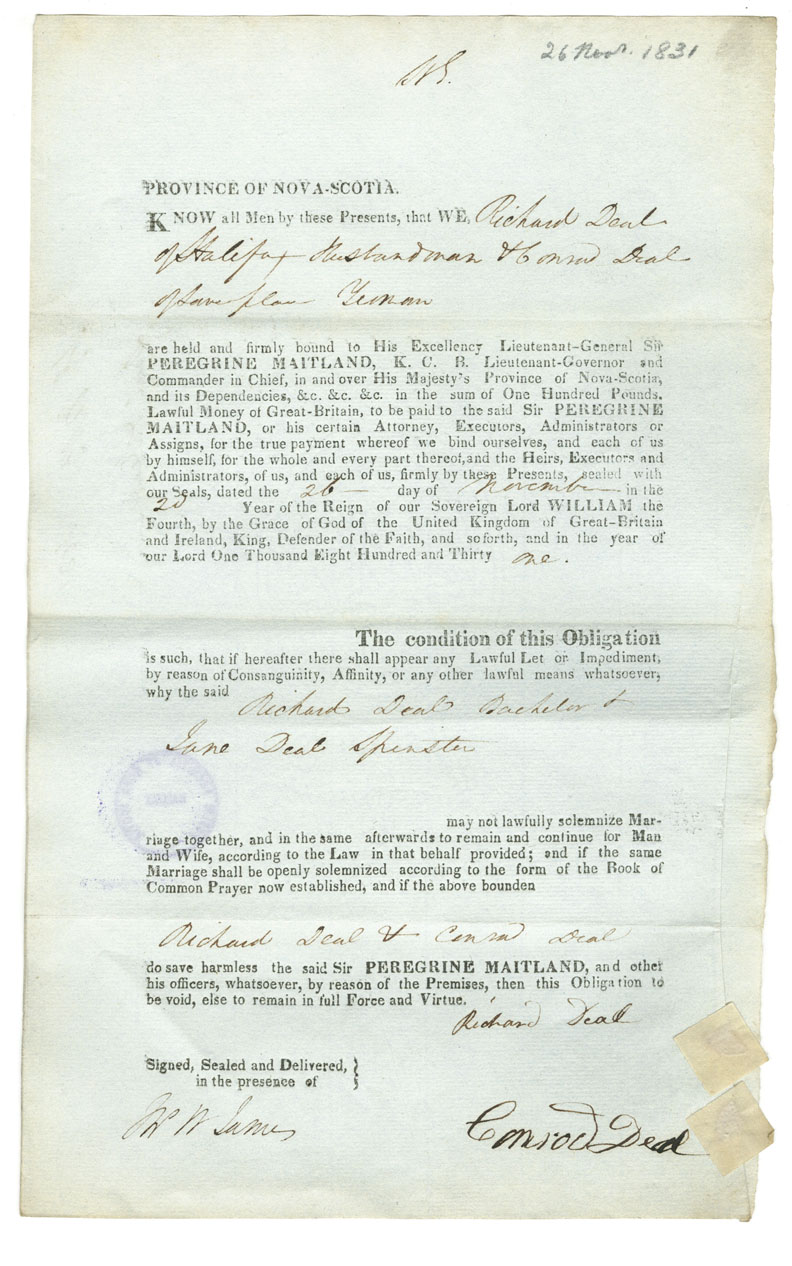 26 Novr. 1831
PROVINCE OF NOVA-SCOTIA.
KNOW all Men by these Presents, that WE, Richard Deal
of Halifax Husbandman & Conrod Deal
of same place Yeoman
are held and firmly bound to His Excellency Lieutenant-General Sir
PEREGRINE MAITLAND, K. C. B. Lieutenant-Governor and
Commander in Chief, in and over His Majesty's Province of Nova-Scotia,
and its Dependencies, &c. &c. &c. in the sum of One Hundred Pounds,
Lawful Money of Great-Britain, to be paid to the said Sir PEREGRINE
MAITLAND, or his certain Attorney, Executors, Administrators or
Assigns, for the true payment whereof we bind ourselves, and each of us
by himself, for the whole and every part thereof, and the Heirs, Executors and
Administrators, of us, and each of us, firmly by these Presents, sealed with
our Seals, dated the 26 day of November in the
2d Year of the Reign of our Sovereign Lord WILLIAM the
Fourth, by the Grace of God of the United Kingdom of Great-Britain
and Ireland, King, Defender of the Faith, and so forth, and in the year of
our Lord One Thousand Eight Hundred and Thirty one.
The condition of this Obligation
is such, that if hereafter there shall appear any Lawful Let or Impediment,
by reason of Consanguinity, Affinity, or any other lawful means whatsoever,
why the said
Richard Deal Bachelor &
Jane Deal Spinster
may not lawfully solemnize Mar-
riage together, and in the same afterwards to remain and continue for Man
and Wife, according to the Law in that behalf provided; and if the same
Marriage shall be openly solemnized according to the form of the Book of
Common Prayer now established, and if the above bounden
Richard Deal & Conrod Deal
do save harmless the said Sir PEREGRINE MAITLAND, and other
his officers, whatsoever, by reason of the Premises, then this Obligation to
be void, else to remain in full Force and Virtue.
Richard Deal
Signed, Sealed and Delivered,
in the presence of
W James
Conrod Deal